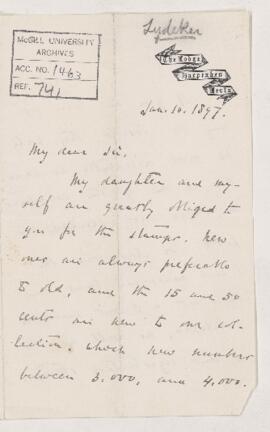 Lydekker
McGILL UNIVERSITY
ARCHIVES
ACC. NO. 1463
REF. 741
The Lodge
Harpenden
Herts
Jan. 10. 1897.
My dear Sir,
My daughter and my-
self are greatly obliged to
you for the stamps. New
ones are always preferable
to old, and the 15 and 50
cents are new to our col-
lection, which now numbers
between 3,000, and 4,000.